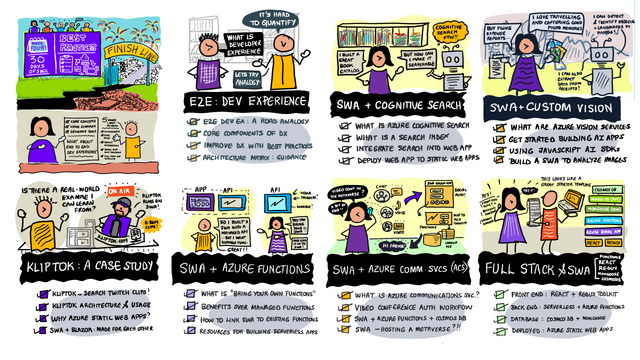 BEST
PRACTICES
30
DAYS
OF SWA
FINISH LINE
WHAT ABOUT
END TO END
DEV EXPERIENCE?
IT'S HARD
TO QUANTIFY
WHAT IS
DEVELOPER
EXPERIENCE
LETS TRY
ANALOGY
E2E: DEV EXPERIENCE
E2E DEV EX: A ROAD ANALOGY
CORE COMPONENTS OF DX
IMPROVE DX WITH BEST PRACTICES
ARCHITECTURE MATRIX: GUIDANCE
COGNITIVE
SEARCH
FTW!!
I BUILT A
GREAT BOOK
CATALOG
BUT HOW CAN
I MAKE IT
SEARCHABLE?
SWA + COGNITIVE SEARCH
WHAT IS AZURE COGNITIVE SEARCH
WHAT IS A SEARCH INDEX
INTEGRATE SEARCH INTO WEB APP
DEPLOY WEB APP TO STATIC WEB APPS
BUT FILING
EXPENSE
REPORTS..
I LOVE TRAVELLING
AND CAPTURING GOOD
FOOD MEMORIES
I CAN DETECT
& IDENTIFY OBJECTS
& LANDMARKS
IN IMAGES!
I CAN ALSO
EXTRACT
DATA FROM
RECEIPTS!
SWA+CUSTOM VISION
WHAT ARE AZURE VISION SERVICES
GET STARTED BUILDING AI APPS
USING JAVASCRIPT AI SDKS
BUILD A SWA TO ANALYZE IMAGES
IS THERE A REAL-WORLD
EXAMPLE I CAN LEARN
FROM?
ON AIR
KLIPTOK
RUNS ON
SWA!
KLIPTOK: A CASE STUDY
KLIPTOK - SEARCH TWITCH CLIPS!
KLIPTOK ARCHITECTURE & USAGE
WHY AZURE STATIC WEB APPS?
SWA + BLAZOR: MADE FOR EACH OTHER
APP
API
API
SO I BUILT A
SWA WITH A
MANAGED API
GREAT!!
SWA + AZURE FUNCTIONS
WHAT IS "BRING YOUR OWN FUNCTIONS"
BENEFITS OVER MANAGED FUNCTIONS
HOW TO LINK SWA TO EXISTING FUNCTIONS
RESOURCES FOR BUILDING SERVERLESS APPS
VIDEO CONF IN
THE METAVERSE?
CHAT
VOICE
HI FRIENDS
SWA + AZURE COMM. SVCS (ACS)
WHAT IS AZURE COMMUNICATIONS SVC.?
VIDEO CONFERENCE AUTH WORKFLOW
SWA + AZURE FUNCTIONS + COSMOS DB
SWA - HOSTING A METAVERSE?!!
THIS LOOKS LIKE A
GREAT STARTER TEMPLATE
COSMOS DB
AZURE FUNCTIONS
REACT
REDUX
FUNCTIONS
REACT
REDUX
MONGOOSE
COSMOSDB
FULL STACK SWA
FRONT END: REACT + REDUX TOOLKIT
BACK END: SERVERLESS + AZURE FUNCTIONS
DATABASE: COSMOS DB + MONGOOSE
DEPLOYED: AZURE STATIC WEB APPS